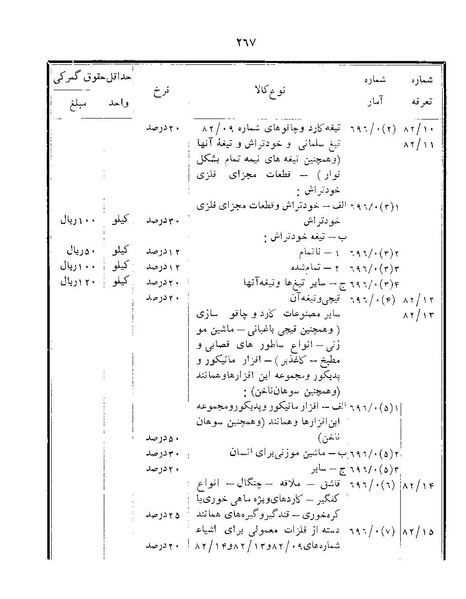 ۲۶۷
شماره شماره نوع کالا نرخ حداقل حقوق گمرکی
تعرفه آمار واحد مبلغ
۸۲/۱۰ ۶۹۶/۰(۲) تیغه کارد و چاقوهای شماره ۸۲/۰۹ ۲۰درصد
۸۲/۱۱ تیغ سلمانی و خودتراش و تیغهٔ آنها
(وهمچنین تیغه های نیمه تمام بشکل
نوار) – قطعات مجزای فلزی
خودتراش :
۶۹۶/۰(۳)۱ الف – خودتراش وقطعات مجزای فلزی
خودتراش ۳۰درصد کیلو ۱۰۰ریال
ب – تیغه خودتراش :
۶۹۶/۰(۳)۲ ۱ – ناتمام ۱۲درصد کیلو ۵۰ریال
۶۹۶/۰(۳)۳ ۲ – تمام‌شده ۱۲درصد کیلو ۱۰۰ریال
۶۹۶/۰(۳)۴ ج – سایر تیغ‌ها وتیغه‌آنها ۲۰درصد کیلو ۱۲۰ریال
۸۲/۱۲ ۶۹۶/۰(۴) قیچی‌وتیغه‌آن ۲۰درصد
۸۲/۱۳ سایر مصنوعات کارد و چاقو سازی
(وهمچنین قیچی باغبانی – ماشین مو
زنی – انواع ساطور های قصابی و
مطبخ – کاغذبر) – افزار مانیکور و
پدیکور ومجموعه این افزارهاوهمانند
(وهمچنین سوهان‌ناخن) :
۶۹۶/۰(۵)۱ الف – افزار مانیکور وپدیکورومجموعه
این‌افزارها وهمانند (وهمچنین سوهان
ناخن) ۵۰درصد
۶۹۶/۰(۵)۲ ب – ماشین موزنی‌برای انسان ۳۰درصد
۶۹۶/۰(۵)۳ ج – سایر ۲۰درصد
۸۲/۱۴ ۶۹۶/۰(۶) قاشق – ملاقه – چنگال – انواع
کفگیر – کاردهای‌ویژه ماهی خوری‌یا
کره‌خوری – قندگیروگیره‌های همانند ۲۵درصد
۸۲/۱۵ ۶۹۶/۰(۷) دسته از فلزات معمولی برای اشیاء
شماره‌های ۸۲/۰۹و۸۲/۱۳و۸۲/۱۴ ۲۰درصد